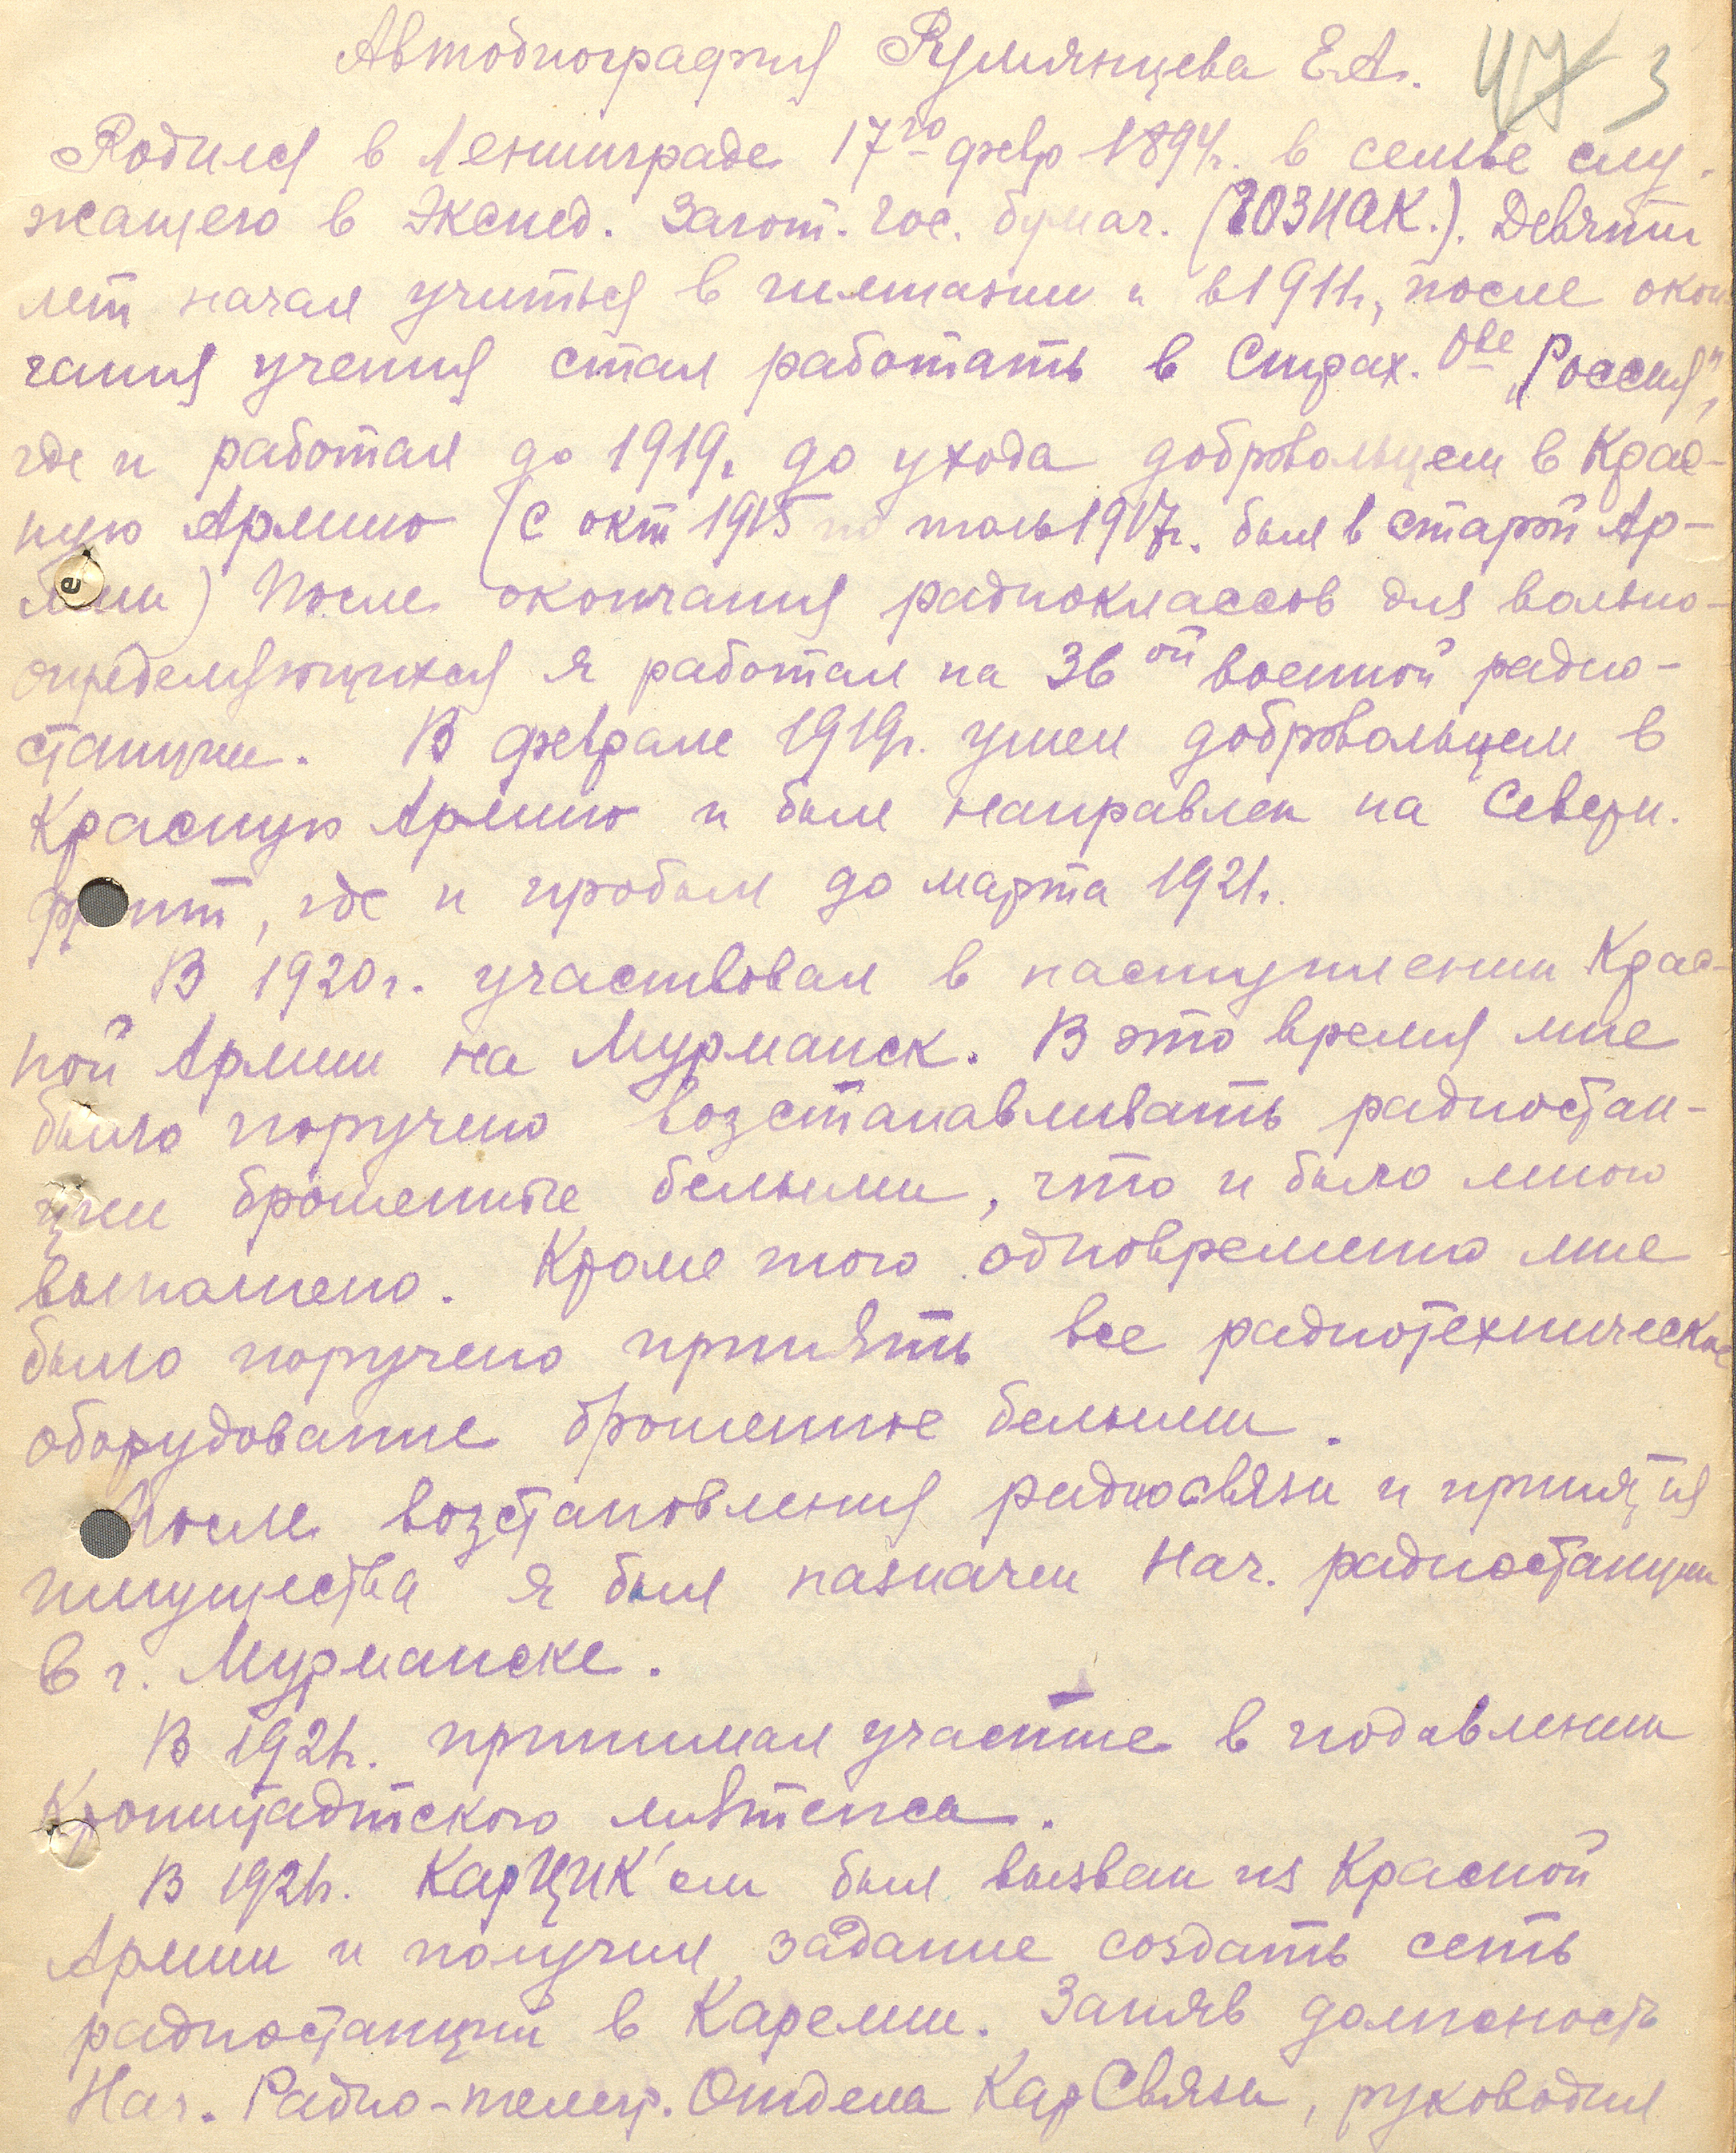 Автобиография Румянцева Е.А. 47 3
Родился в Ленинграде 17го февр 1894г. в семье слу-
жащего в Экспед. Загот. Гос. бумаг. (ГОЗНАК.). Девяти
лет начал учиться в гимназии и в 1911г., после окон
чания учения стал работать в Страх. Ове „Россия",
где и работал до 1919г. до ухода добровольцем в Крас-
ную Армию (с окт 1915 по июль 1917г. был в старой Ар-
мии) После окончания радиоклассов для вольно-
определяющихся я работал на 36ой военной радио-
станции. В феврале 1919г. ушел добровольцем в
Красную Армию и был направлен на Северн.
фронт, где и пробыл до марта 1921г.
В 1920г. участвовал в наступлении Крас-
ной Армии на Мурманск. В это время мне
было поручено возстанавливать радиостан-
ции брошенные белыми, что и было мною
выполнено. Кроме того одновременно мне
было поручено принять все радиотехническое
оборудование брошенное белыми.
После возстановления радиосвязи и принятия
имущества я был назначен Нач. радиостанции
в г. Мурманске.
В 1921г. принимал участие в подавлении
Кронштадтского мятежа.
В 1921г. КарЦИК'ом был вызван из Красной
Армии и получил задание создать сеть
радиостанций в Карелии. Заняв должность
Нач. Радио-телегр. Отдела КарСвязи, руководил